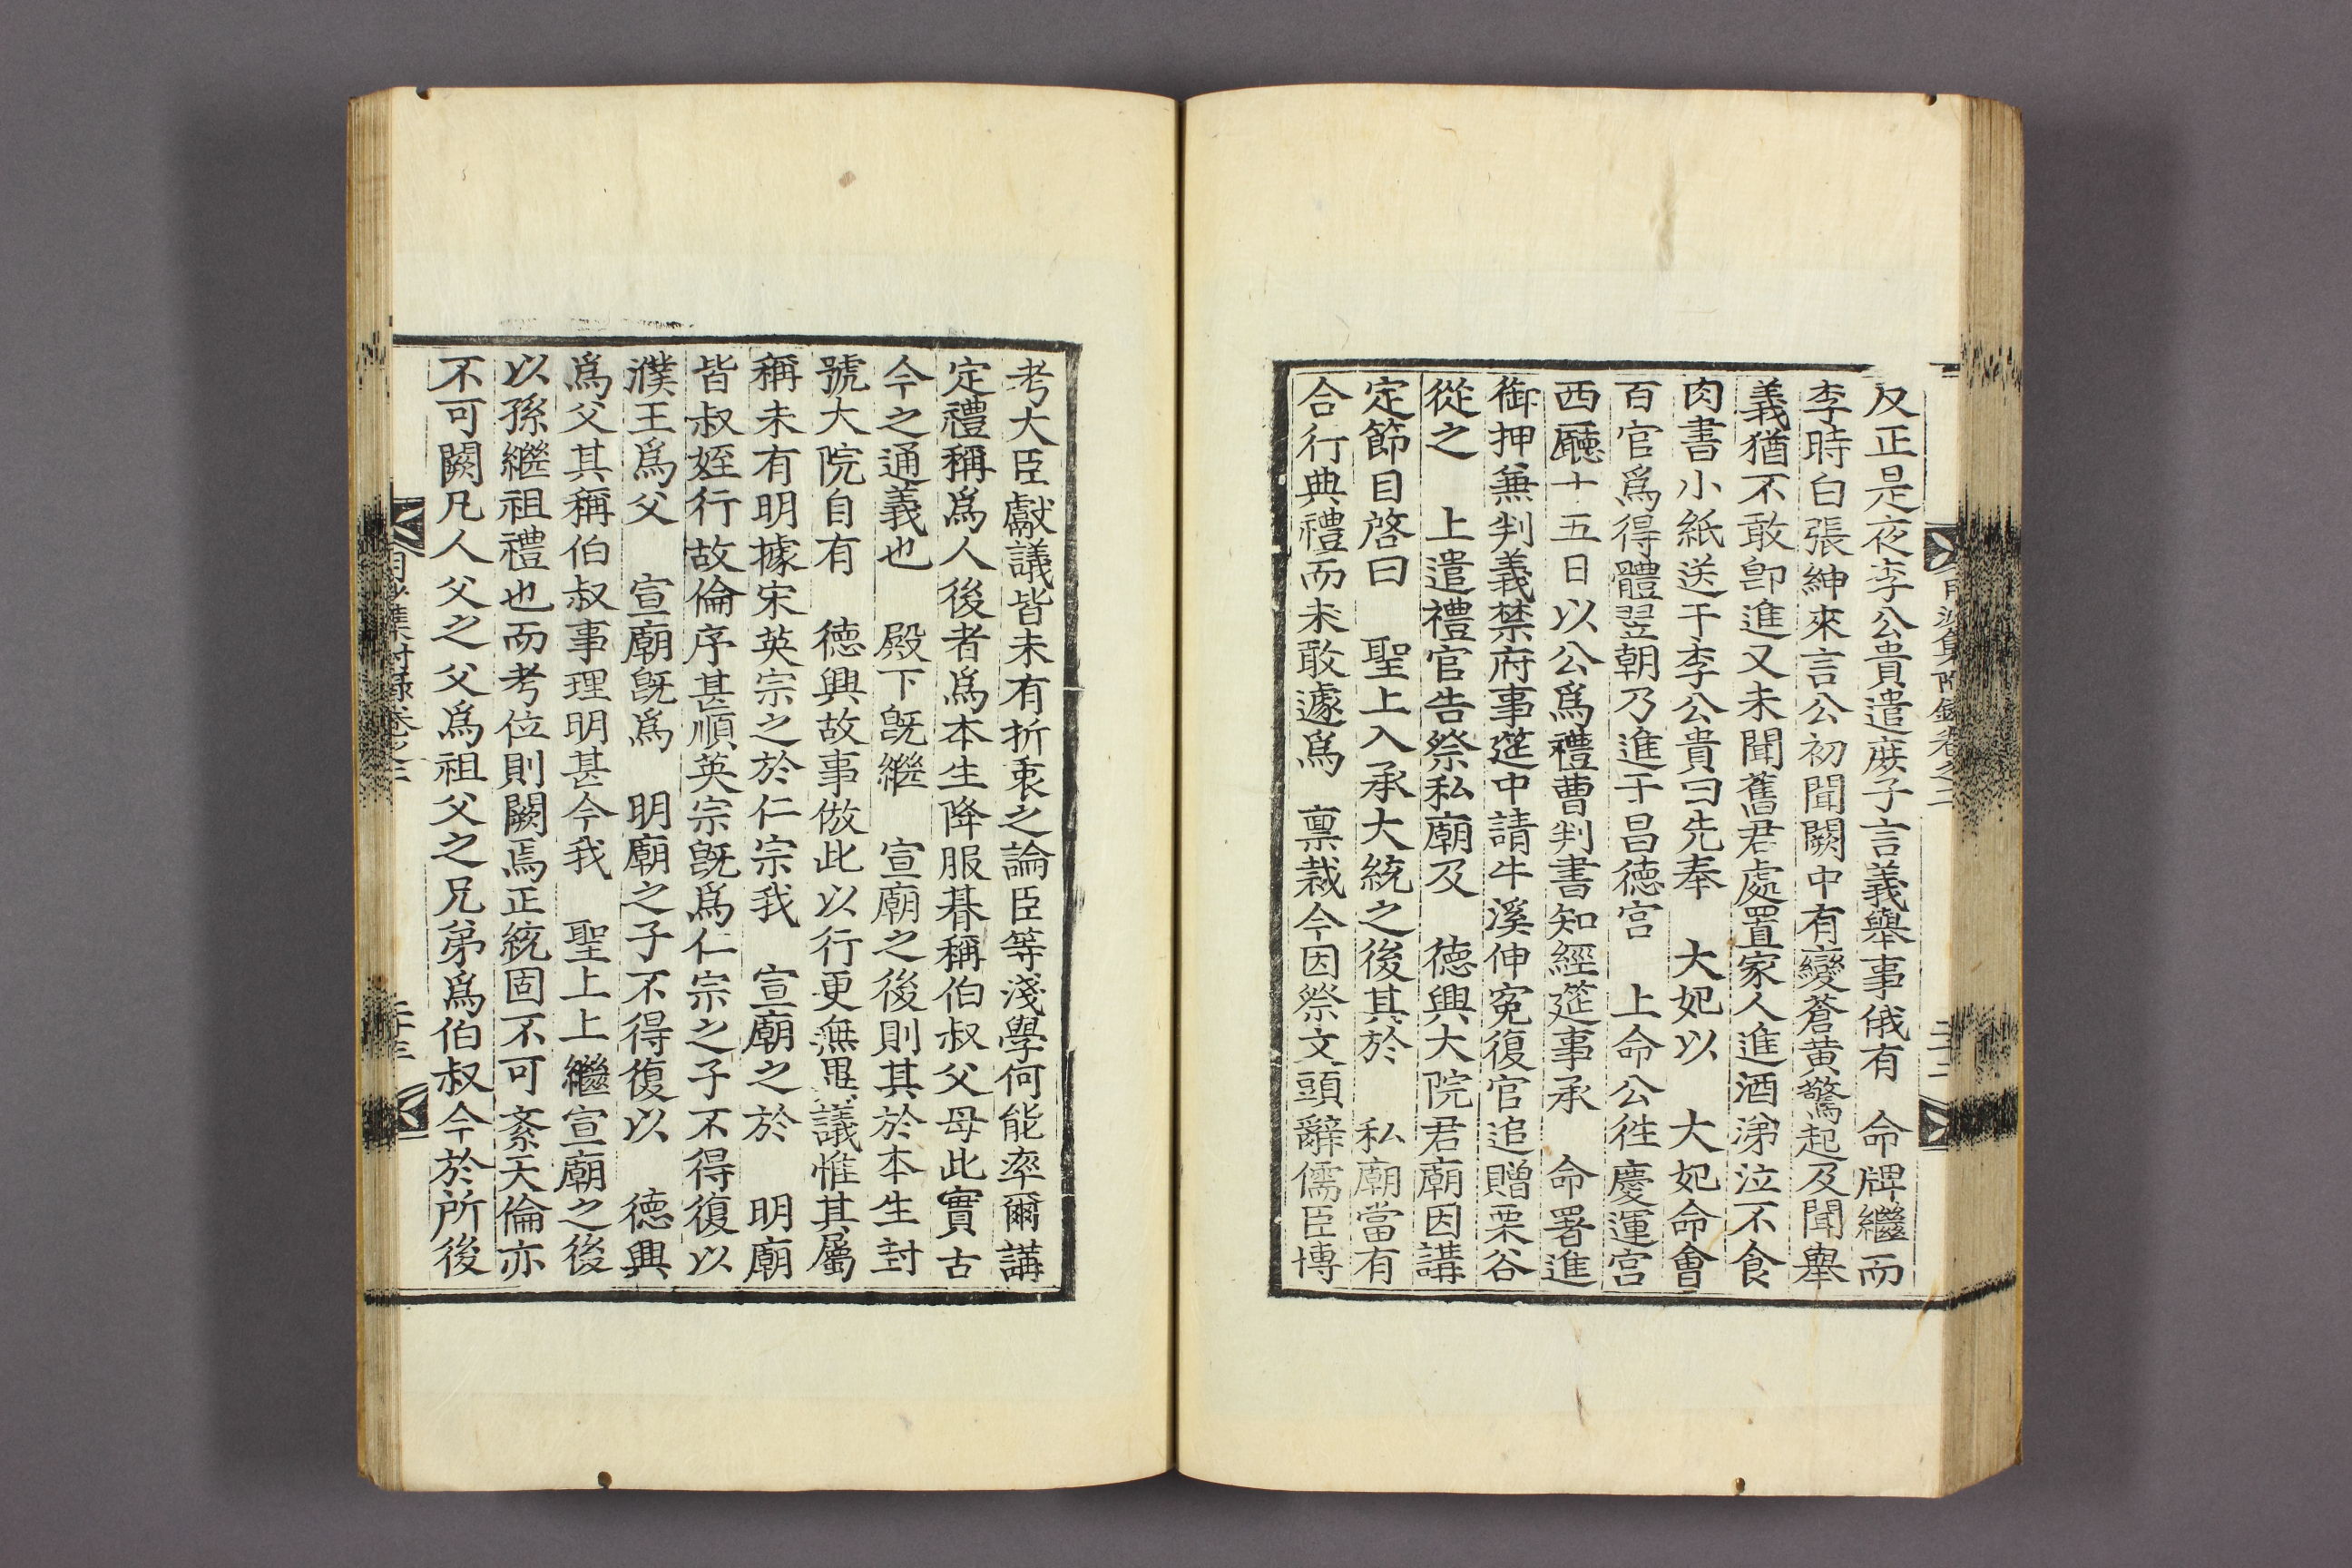 反正是夜李公貴遣庶子言義舉事俄有 命牌繼而
李時白張紳來言公初聞闕中有變蒼黃驚起及聞舉
義猶不敢卽進又未聞舊君處置家人進酒涕泣不食
肉書小紙送于李公貴曰先奉 大妃以 大妃命會
百官爲得體翌朝乃進于昌德宮 上命公徃慶運宮
西廳十五日以公爲禮曹判書知經筵事承 命署進
御押兼判義禁府事筵中請牛溪伸寃復官追贈栗谷
從之 上遣禮官告祭私廟及 德興大院君廟因講
定節目啓曰 聖上入承大統之後其於 私廟當有
合行典禮而未敢遽爲 稟裁今因祭文頭辭儒臣博
考大臣獻議皆未有折衷之論臣等淺學何能率爾講
定禮稱爲人後者爲本生降服朞稱伯叔父母此實古
今之通義也 殿下旣繼 宣廟之後則其於本生封
號大院自有 德興故事倣此以行更無異議惟其屬
稱未有明據宋英宗之於仁宗我 宣廟之於 明廟
皆叔姪行故倫序甚順英宗旣爲仁宗之子不得復以
濮王爲父 宣廟旣爲 明廟之子不得復以 德興
爲父其稱伯叔事理明甚今我 聖上上繼宣廟之後
以孫繼祖禮也而考位則闕焉正統固不可紊天倫亦
不可闕凡人父之父爲祖父之兄弟爲伯叔今於所後